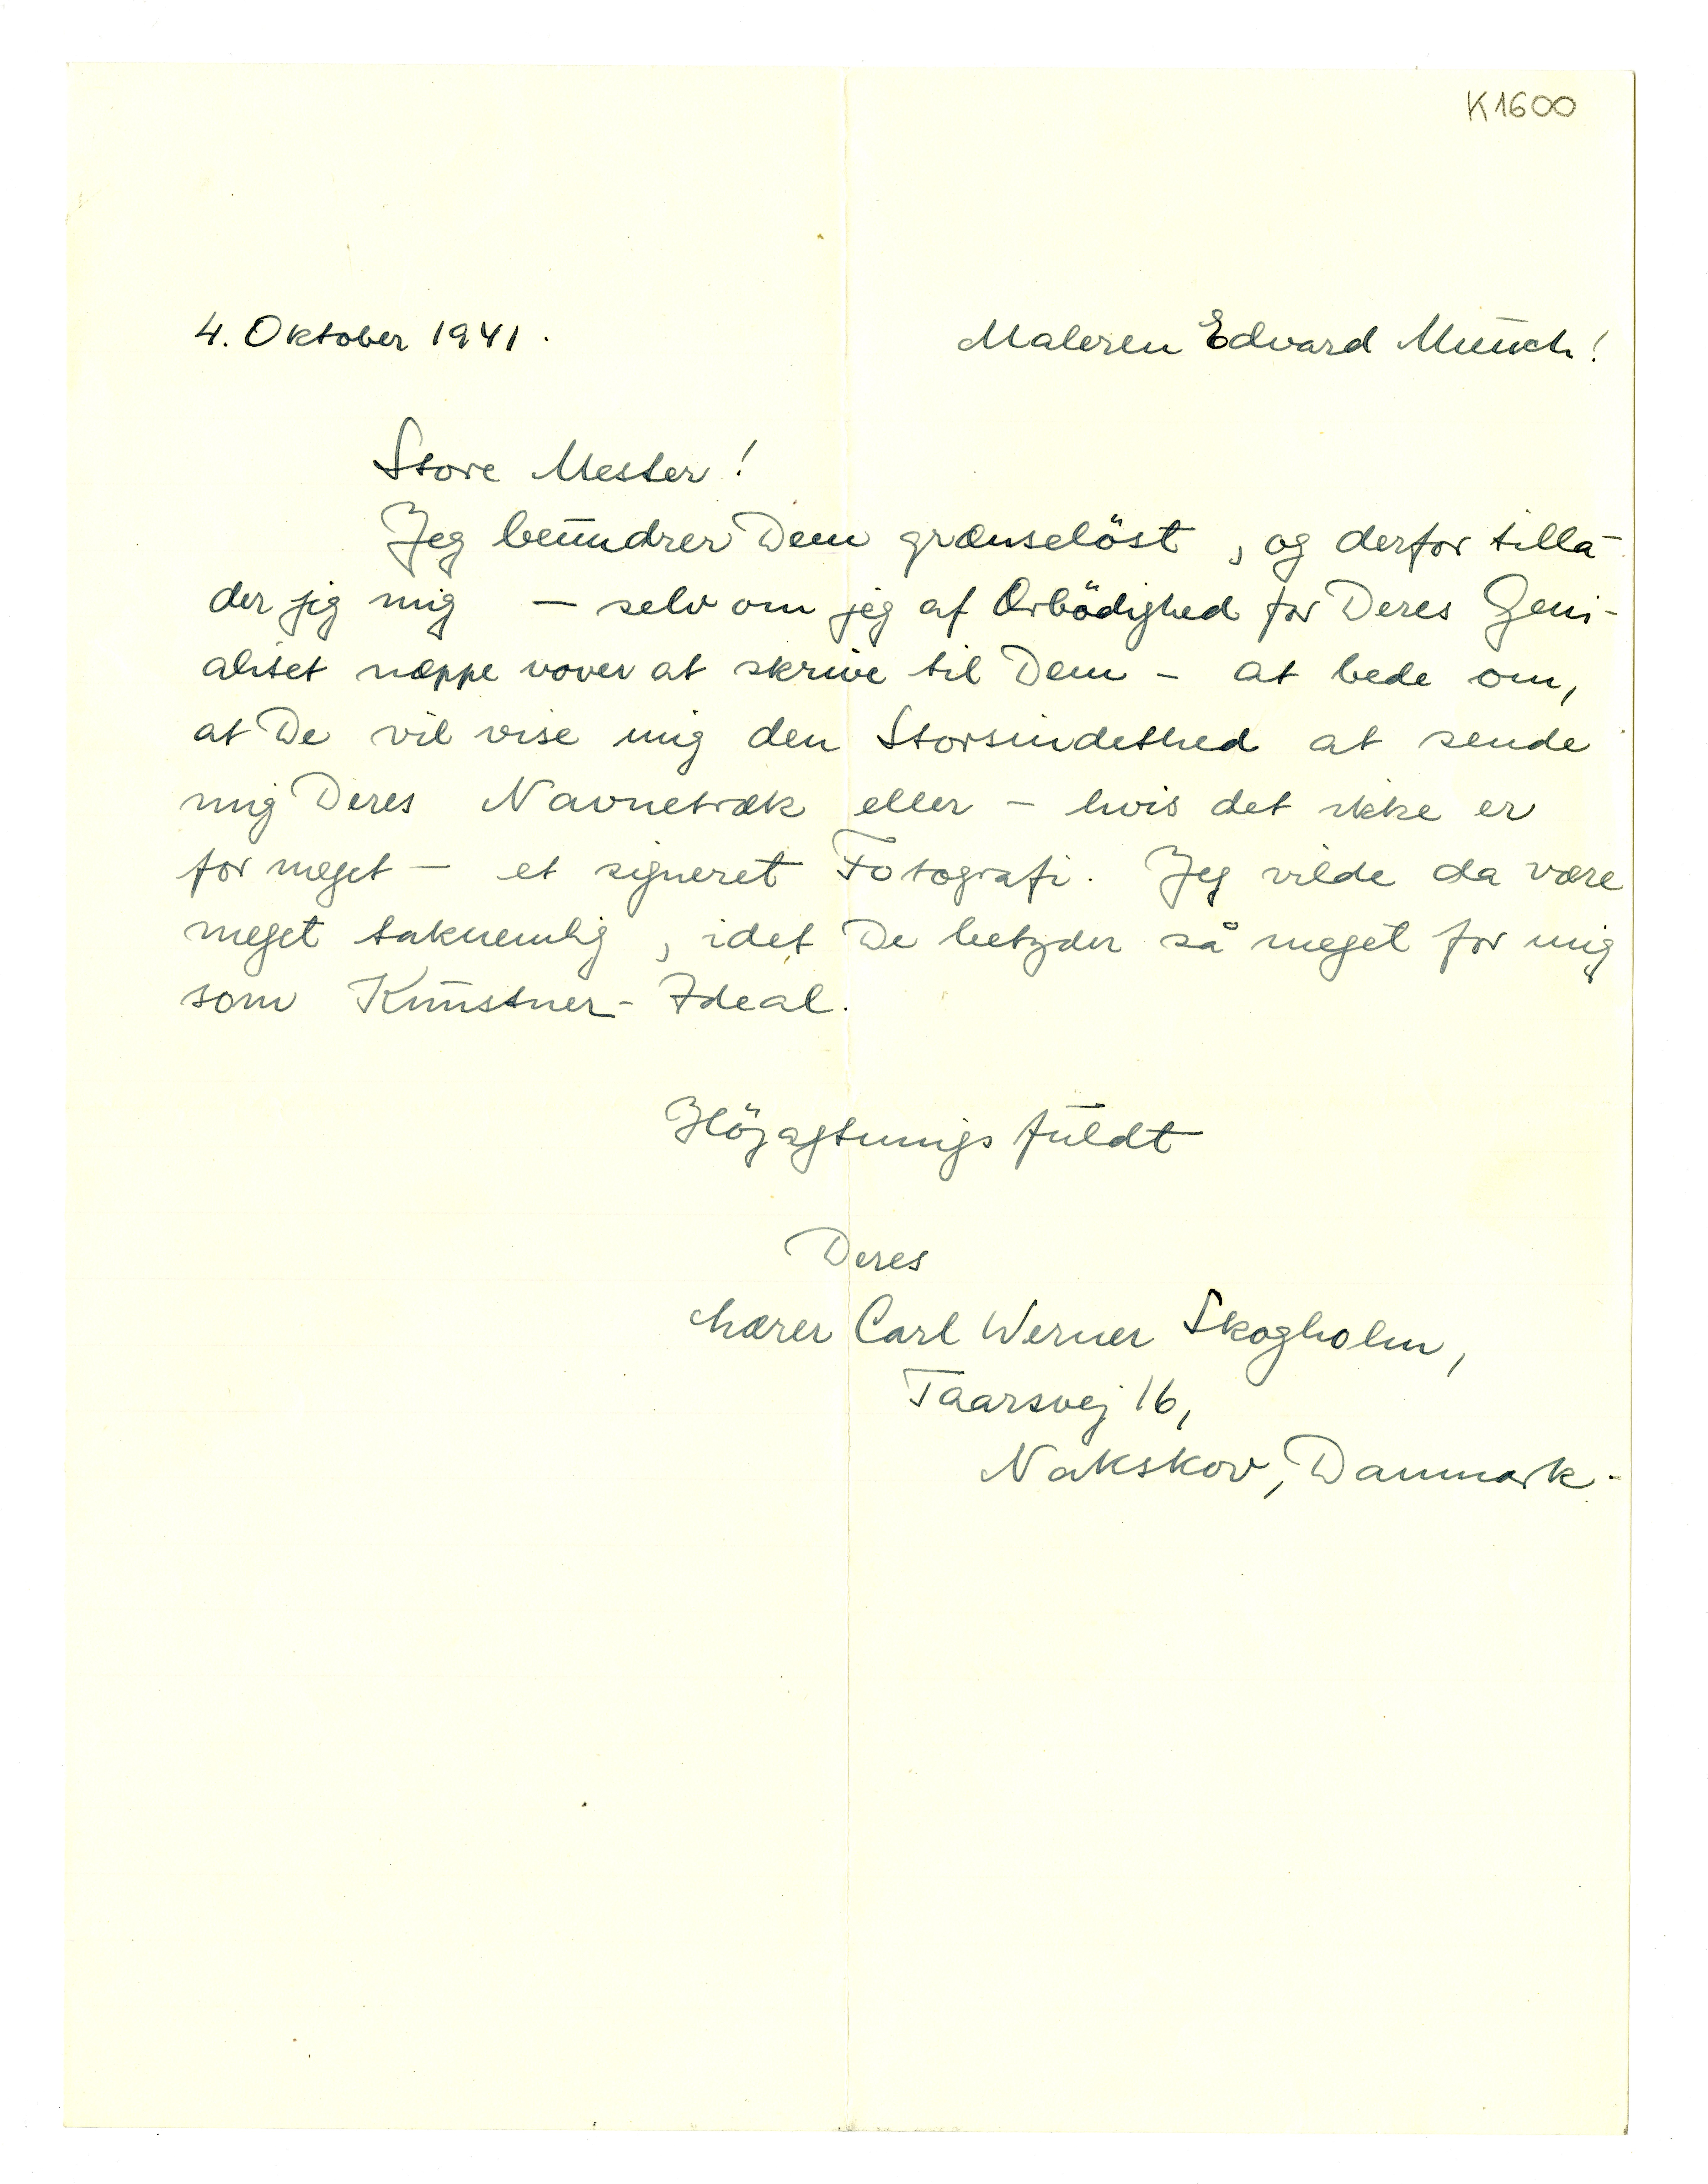 K1600
4. Oktober 1941.
Maleren Edvard Munch!
Store Mester!
Jeg beundrer Dem grænselöst, og derfor tilla-
der jeg mig — selv om jeg af Ærbödighed for Deres Geni-
alitet næppe vover at skrive til Dem – at bede om,
at De vil vise mig den Storsindethed at sende
mig Deres Navnetræk eller – hvis det ikke er
for meget – et signeret Fotografi. Jeg vilde da være
meget taknemlig, idet De betyder så meget for mig
som Kunstner-Ideal.
Höjagtungsfuldt
Deres
Lærer Carl Werner Skogholm,
Taarsvej 16,
Nakskov, Danmark.